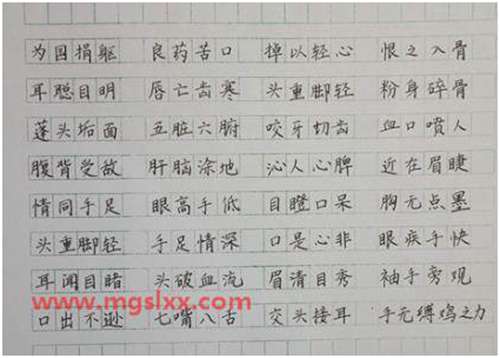 为国捐躯 良药苦口 掉以轻心 恨之入骨
耳聪目明 唇亡齿寒 头重脚轻 粉身碎骨
蓬头垢面 五脏六腑 咬牙切齿 血口喷人
腹背受敌 肝脑涂地 沁人心脾 近在眉睫
情同手足 眼高手低 目瞪口呆 胸无点墨
头重脚轻 手足情深 口是心非 眼疾手快
耳闻目睹 头破血流 眉清目秀 袖手旁观
www.mgslxx.com
口出不逊 七嘴八舌 交头接耳 手无缚鸡之力